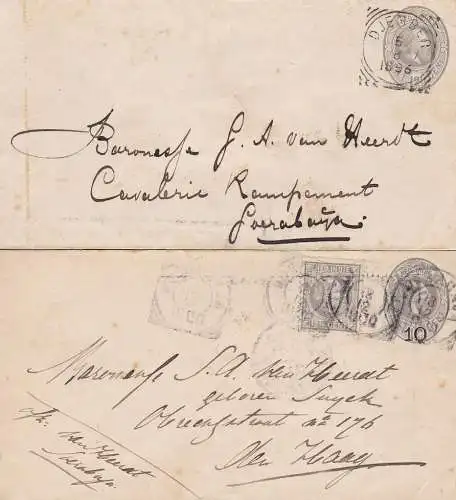 DJEMBER
1896
Baronesse G. A. van Heerdt
Cavalerie Kampement
Soerabaya
10
Baronesse S. A. van Heerdt
geboren
Obrechtstraat no 176
Den Haag
afz.
van Heerdt
Soerabaya